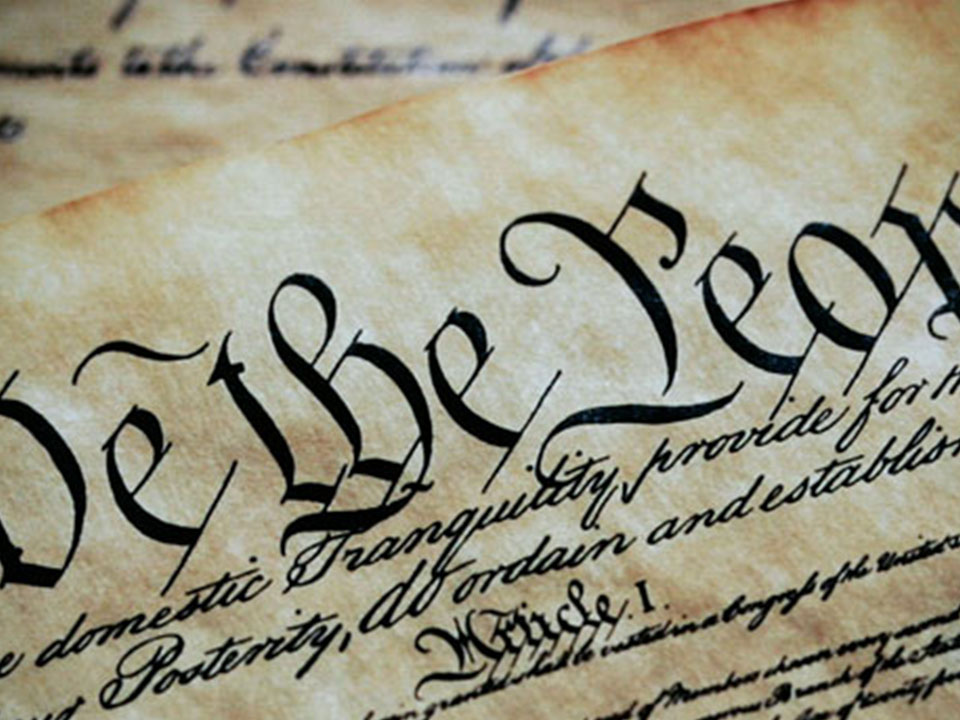 to the Constitution
We the Peop
domestic Tranquility, provide for th
Posterity, do ordain and establish
Article. I.
shall be vested in a Congress of the United
of Members chosen every
Branch of the State
of twenty five